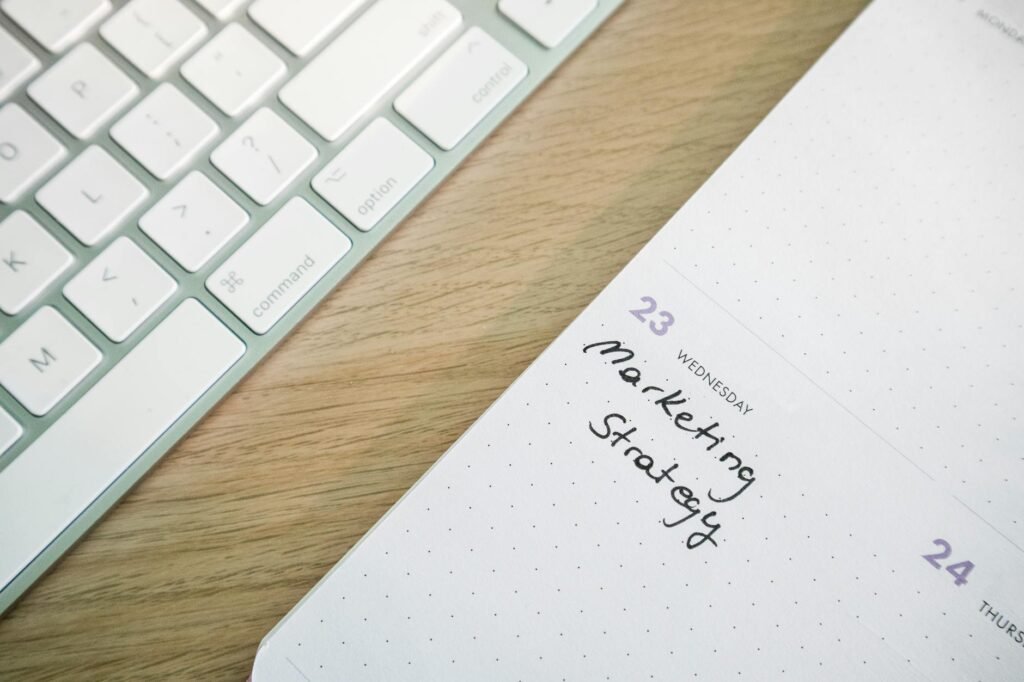 shift
control
option
command
P
O
L
K
M
? /
> .
< ,
: ;
" '
{ [
⌘
⌥
^
MONDA
23
WEDNESDAY
Marketing
Strategy
24
THURS